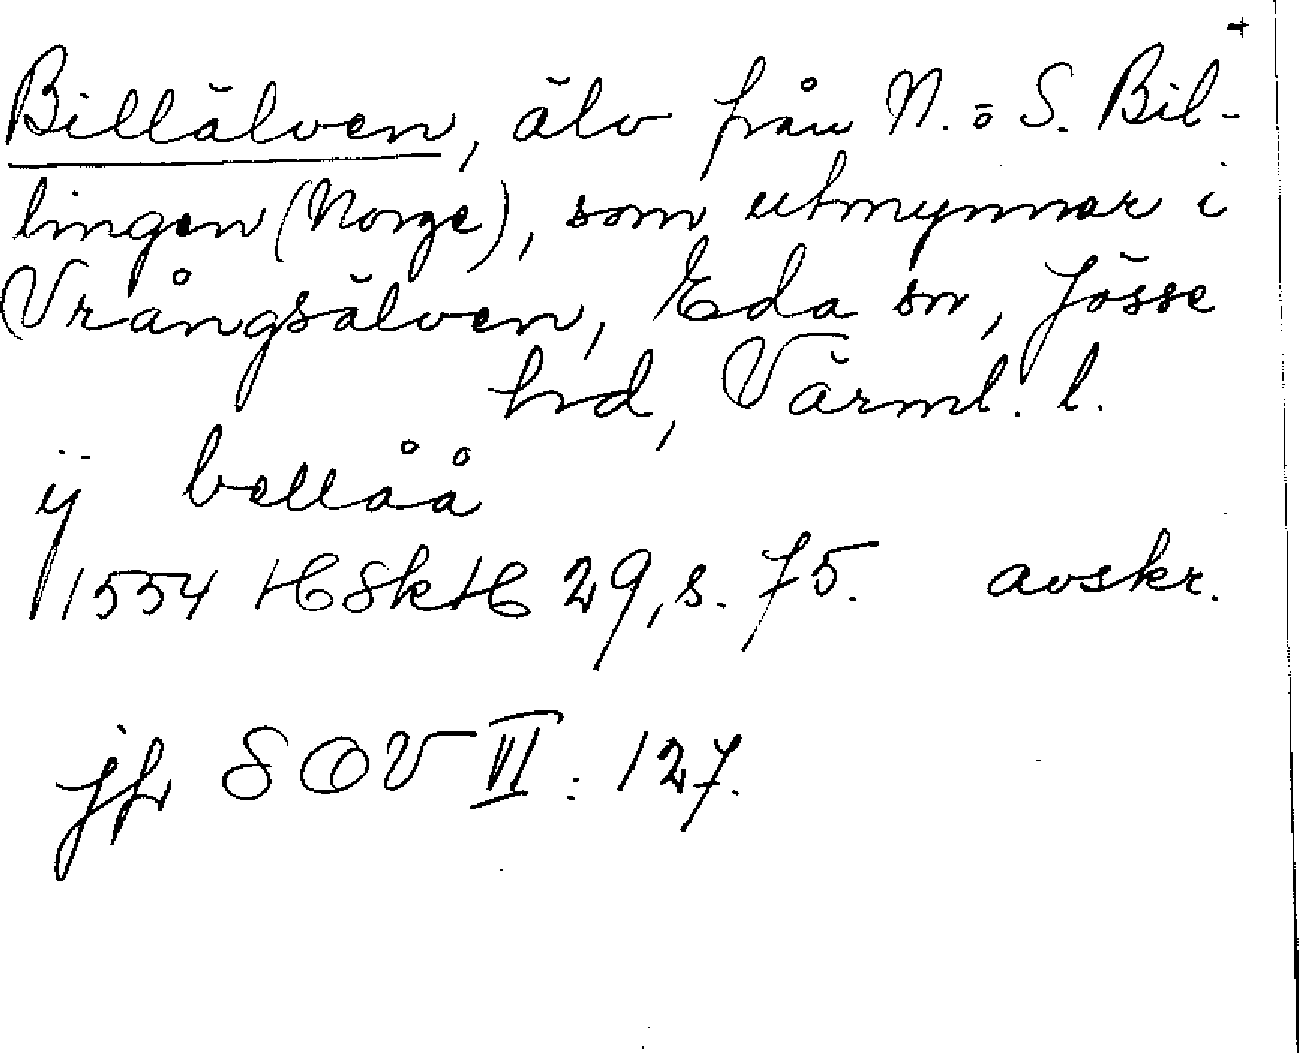 +
Billälven, älv från N. o S. Bil-
lingen (Norge), som utmynnar i
Vrångsälven, Eda sn, Jösse
hd, Värml. l.
ij bellåå
1554 HSkH 29, s. 75. avskr.
jfr SOV VI: 127.